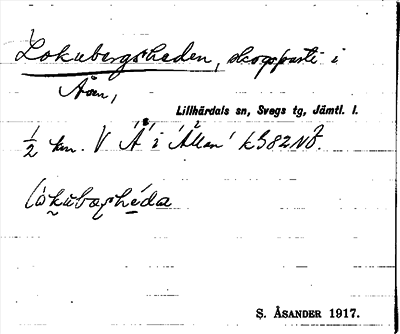 Lokubergsheden, skogsparti i
Åsen,
Lillhärdals sn, Svegs tg, Jämtl. l.
½ km. V "Å" i "Ållan" kG82NÖ.
lòkubæṣhéda
S. ÅSANDER 1917.